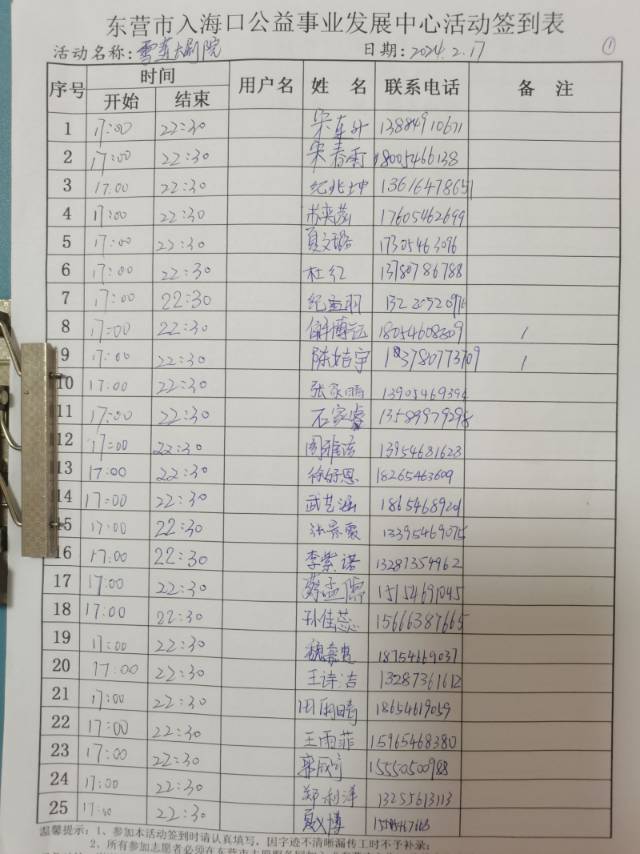 东营市入海口公益事业发展中心活动签到表
活动名称:雪莲大剧院 日期:2024.2.17 ①
序号 时间 用户名 姓名 联系电话 备注
开始 结束
1 17:00 22:30 13884910671
2 17:00 22:30 宋春雨 18005466138
3 17:00 22:30 纪兆坤 13616478651
4 17:00 22:30 苏奕茜 17605462699
5 17:00 22:30 夏文璐 17305463076
6 17:00 22:30 杜红 13780786788
7 17:00 22:30 纪孟羽
8 17:00 22:30 解博钰 18054608309 1
9 17:00 22:30 陈姞宇 13780773709 1
10 17:00 22:30 13905469394
11 17:00 22:30 石家睿 13589979298
12 17:00 22:30 周雅洁 13954681623
13 17:00 22:30 徐好恩 18265463609
14 17:00 22:30 武艺涵 18654689201
15 17:00 22:30 张景雯 13395469075
16 17:00 22:30 李紫诺 13287354962
17 17:00 22:30 15154691045
18 17:00 22:30 孙佳蕊 15666387665
19 17:00 22:30 18754669037
20 17:00 22:30 王诗洁 13287361612
21 17:00 22:30 田雨晴 18654619059
22 17:00 22:30 王雨菲 15965468380
23 17:00 22:30 15550500988
24 17:00 22:30 郑利洋 13255613113
25 22:30 夏文博
温馨提示:1、参加本活动签到时请认真填写,因字迹不清晰漏传工时不予补录;
2、所有参加志愿者必须在东营市志愿服务网